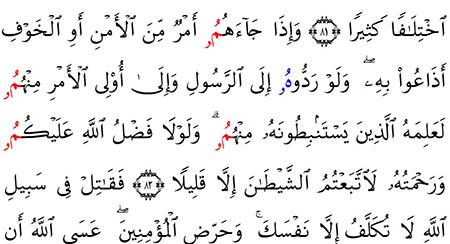 ٱخۡتِلَٰفٗا كَثِيرٗا ۝٨١ وَإِذَا جَآءَهُمُۥ أَمۡرٞ مِّنَ ٱلۡأَمۡنِ أَوِ ٱلۡخَوۡفِ
أَذَاعُواْ بِهِۦۖ وَلَوۡ رَدُّوهُۥ إِلَى ٱلرَّسُولِ وَإِلَىٰٓ أُوْلِي ٱلۡأَمۡرِ مِنۡهُمُۥ
لَعَلِمَهُ ٱلَّذِينَ يَسۡتَنۢبِطُونَهُۥ مِنۡهُمُۥۗ وَلَوۡلَا فَضۡلُ ٱللَّهِ عَلَيۡكُمُۥ
وَرَحۡمَتُهُۥ لَٱتَّبَعۡتُمُ ٱلشَّيۡطَٰنَ إِلَّا قَلِيلٗا ۝٨٢ فَقَٰتِلۡ فِي سَبِيلِ
ٱللَّهِ لَا تُكَلَّفُ إِلَّا نَفۡسَكَۚ وَحَرِّضِ ٱلۡمُؤۡمِنِينَۖ عَسَى ٱللَّهُ أَن